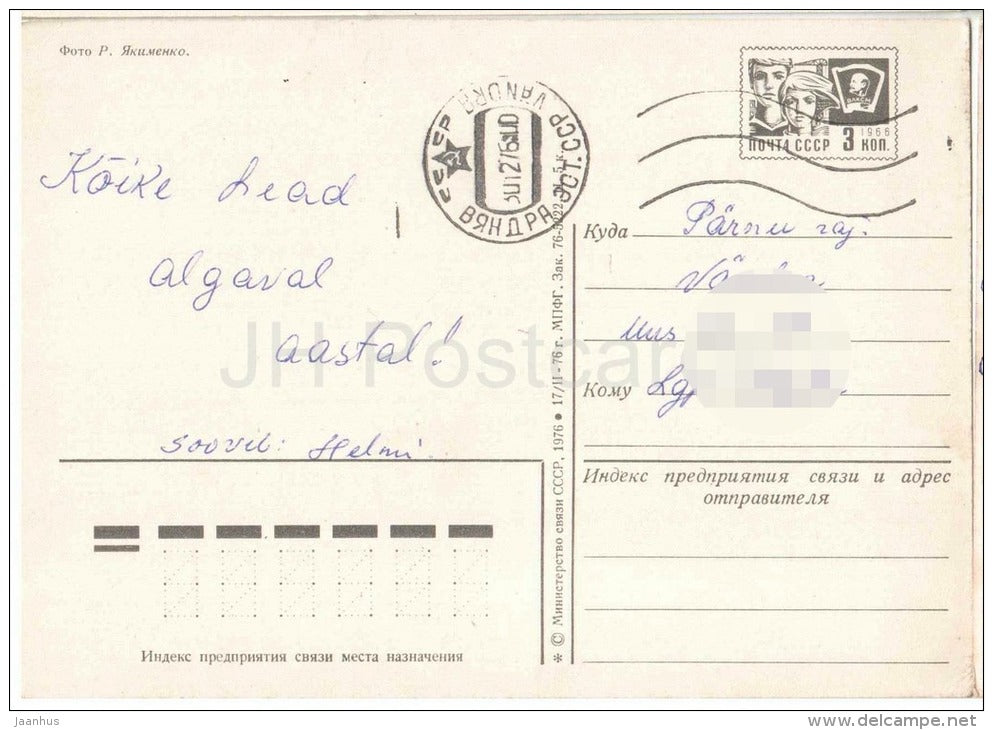 Фото Р. Якименко.
ПОЧТА СССР 3 КОП.
1966
ВЛКСМ
СССР VÄNDRA
30 12 76
ВЯНДРА ЭСТ.ССР
Kõike head
algaval
aastal!
soovib: Helmi.
Куда Pärnu raj.
Uus
Кому
Индекс предприятия связи и адрес
отправителя
Индекс предприятия связи места назначения
* © Министерство связи СССР, 1976 • 17/II - 76 г. МПФГ. Зак. 76-3222 5 к.
JH Postcards
jaanhus
www.delcampe.net